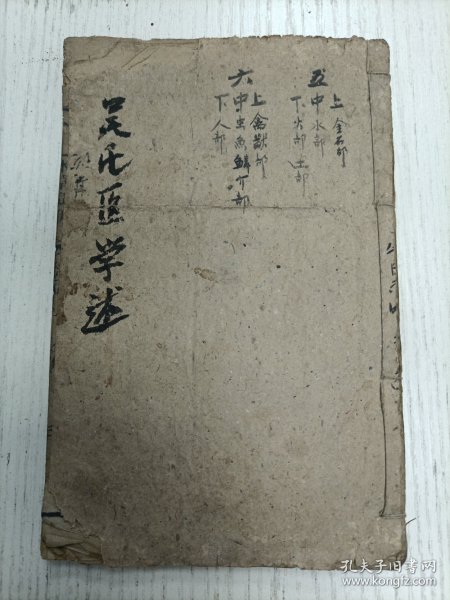 五
上 金石部
中 水部
下 火部 土部
六
上 禽兽部
中 虫鱼鳞介部
下 人部
吴氏医学述
孔夫子旧书网
www.kongfz.com